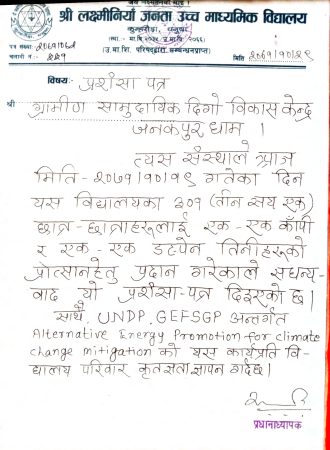 श्री लक्ष्मीनियाँ जनता उच्च माध्यमिक विद्यालय
पत्र संख्याः
चलानी नं.
मिति
विषयः- प्रशंसा पत्र
श्री ग्रामीण सामुदायिक दिगो विकास केन्द्र
जनकपुर धाम ।
त्यस संस्थाले आज
मिति - २०७१/०१/१९ गतेका दिन
यस विद्यालयका ३०१ (तीन सय एक)
छात्र-छात्राहरूलाई एक-एक कॉपी
र एक-एक डटपेन तिनीहरूको
प्रोत्सानहेतु प्रदान गरेकाले सधन्य-
वाद यो प्रशंसा-पत्र दिइएको छ।
साथै, UNDP, GEFSGP अन्तर्गत
Alternative Energy Promotion for climate
change mitigation को यस कार्यप्रति वि-
द्यालय परिवार कृतज्ञता ज्ञापन गर्दछ।
प्रधानाध्यापक